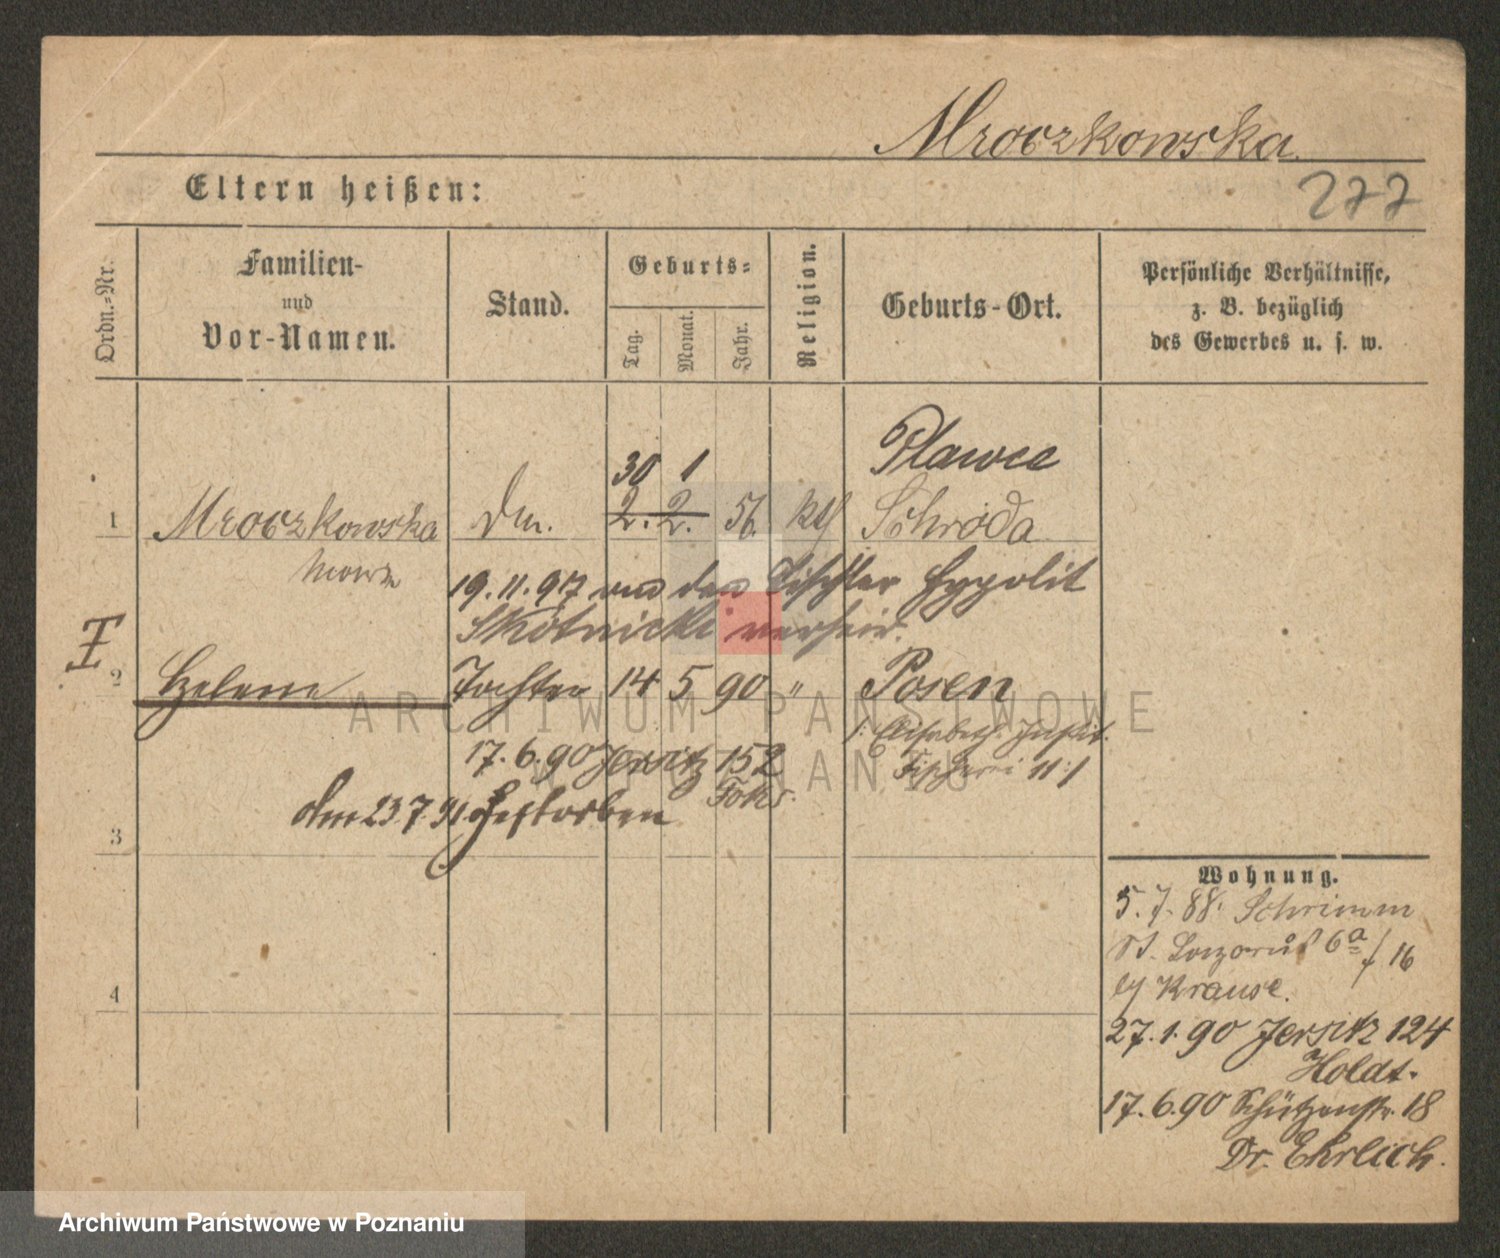 Mroczkowska
Eltern heißen:
277
Ordn.-Nr.
Familien-
und
Vor-Namen.
Stand.
Geburts-
Tag.
Monat.
Jahr.
Religion.
Geburts-Ort.
Persönliche Verhältnisse,
z. B. bezüglich
des Gewerbes u. s. w.
30 1 Plawce
1 Mroczkowska Dm. 2. 2. 56. kth Schroda
19. 11. 97 den Tischler Hypolit
Skotnicki verheir.
I
2 Helene Tochter 14 5 90 " Posen
Elisabeth
17. 6. 90 Jersitz 152
Am 23 7 91 Gestorben
3
Wohnung.
5. 7. 88. Schrimm
St. Lazarus 6a / 16
b/ Krause.
4
27. 1. 90 Jersitz 124
Holdt.
17. 6. 90 Schützenstr. 18
Dr. Ehrlich.
ARCHIWUM PAŃSTWOWE
W POZNANIU
Archiwum Państwowe w Poznaniu